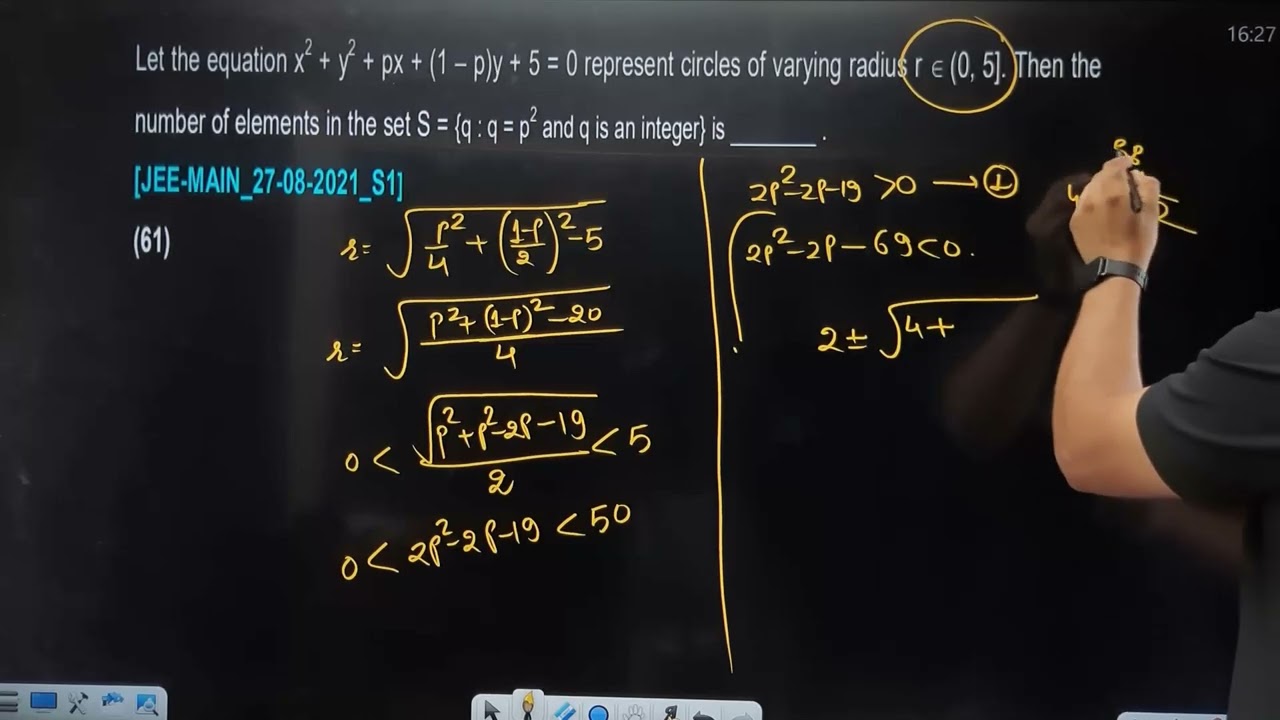 16:27
Let the equation x² + y² + px + (1 – p)y + 5 = 0 represent circles of varying radius r ∈ (0, 5]. Then the
number of elements in the set S = {q : q = p² and q is an integer} is ______ .
[JEE-MAIN_27-08-2021_S1]
(61)
r = √(p²/4 + ((1-p)/2)² - 5)
r = √((p² + (1-p)² - 20)/4)
0 < √(p² + p² - 2p - 19)/2 < 5
0 < 2p² - 2p - 19 < 50
2p² - 2p - 19 > 0 → ①
2p² - 2p - 69 < 0.
2 ± √(4 +